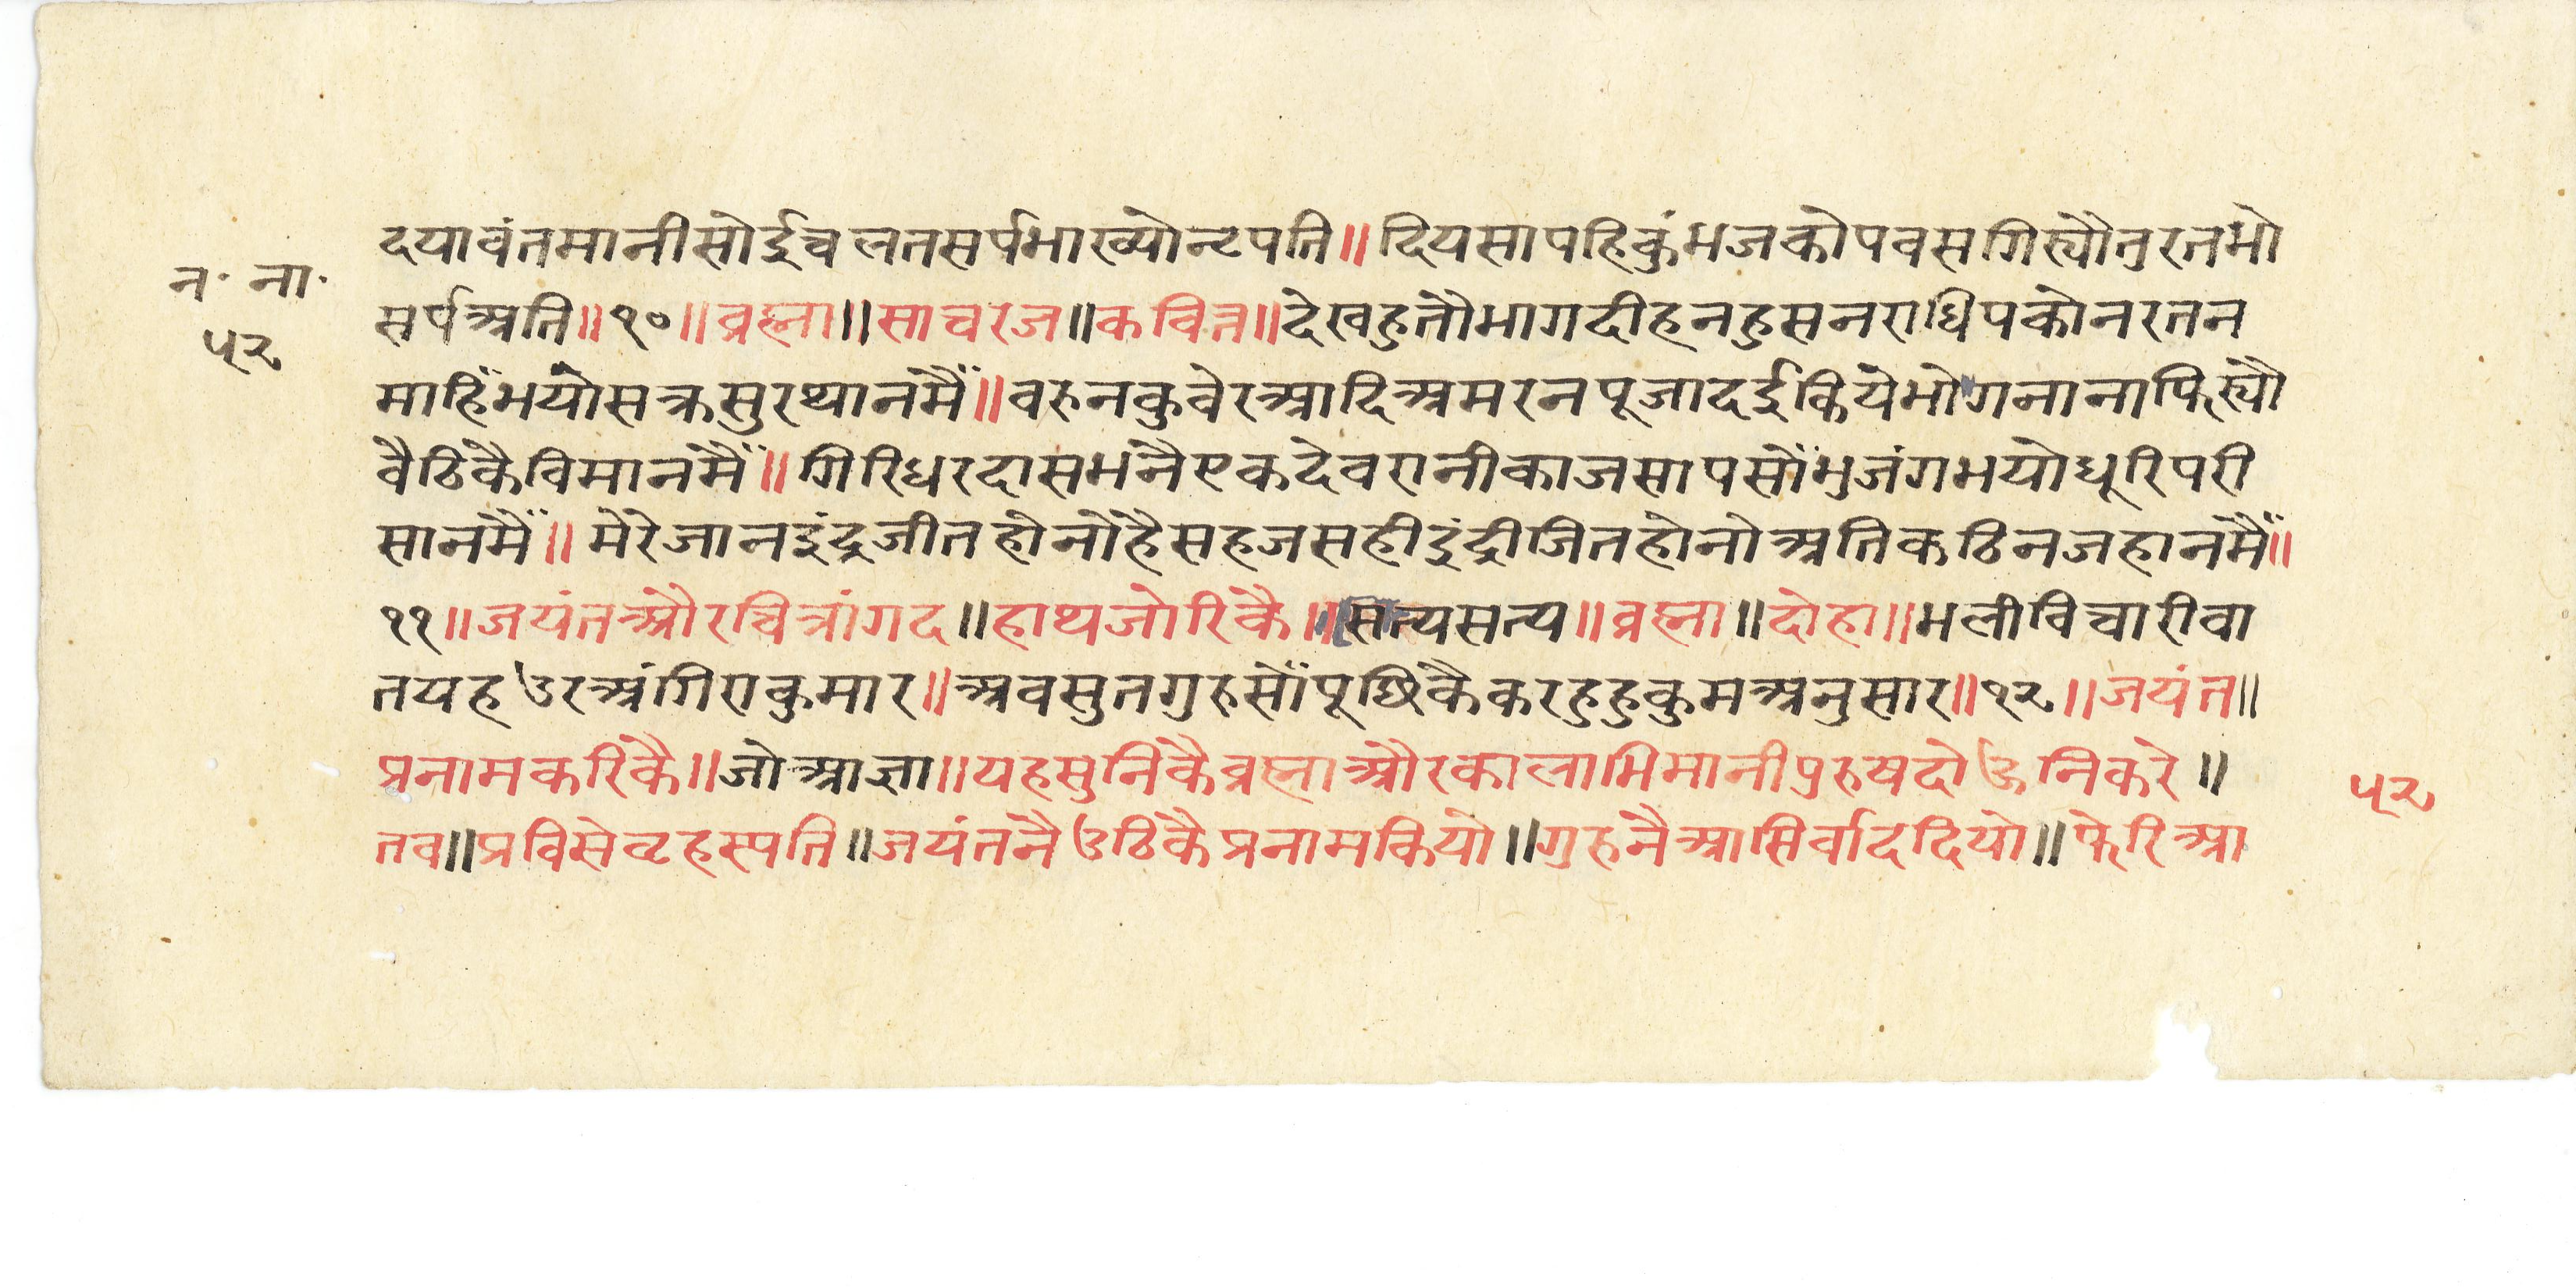 न॰ ना॰
५२
दयावंतमानीसोईचलतसर्पभाख्योनृपति॥दियसापहिकुंभजकोपवसगिस्यौतुरतभो
सर्पअति॥१०॥ब्रह्मा॥साचरज॥कवित्त॥देखहुतौभागदीहनहुसनराधिपकोनरतन
माहिँभयोसक्रसुरथानमैँ॥वरुनकुवेरआदिअमरनपूजादईकियेभोगनानाफिस्यौ
वैठिकैविमानमैँ॥गिरिधरदासभनैएकदेवरानीकाजसापसौँभुजंगभयोधूरिपरी
सानमैँ॥मेरेजानइंद्रजीतहोनोहैसहजसहीइंद्रीजितहोनोअतिकठिनजहानमैँ॥
११॥जयंतऔरचित्रांगद॥हाथजोरिकै॥सत्यसत्य॥ब्रह्मा॥दोहा॥भलीविचारीवा
तयहउरअंगिराकुमार॥अवसुतगुरुसौँपूछिकैकरहुहुकुमअनुसार॥१२॥जयंत॥
प्रनामकरिकै॥जोआज्ञा॥यहसुनिकैब्रह्माऔरकालाभिमानीपुरुषदोऊनिकरे॥
तव॥प्रविसेवृहस्पति॥जयंतनैउठिकैप्रनामकियो॥गुरुनैआसिर्वाददियो॥फेरिआ
५२